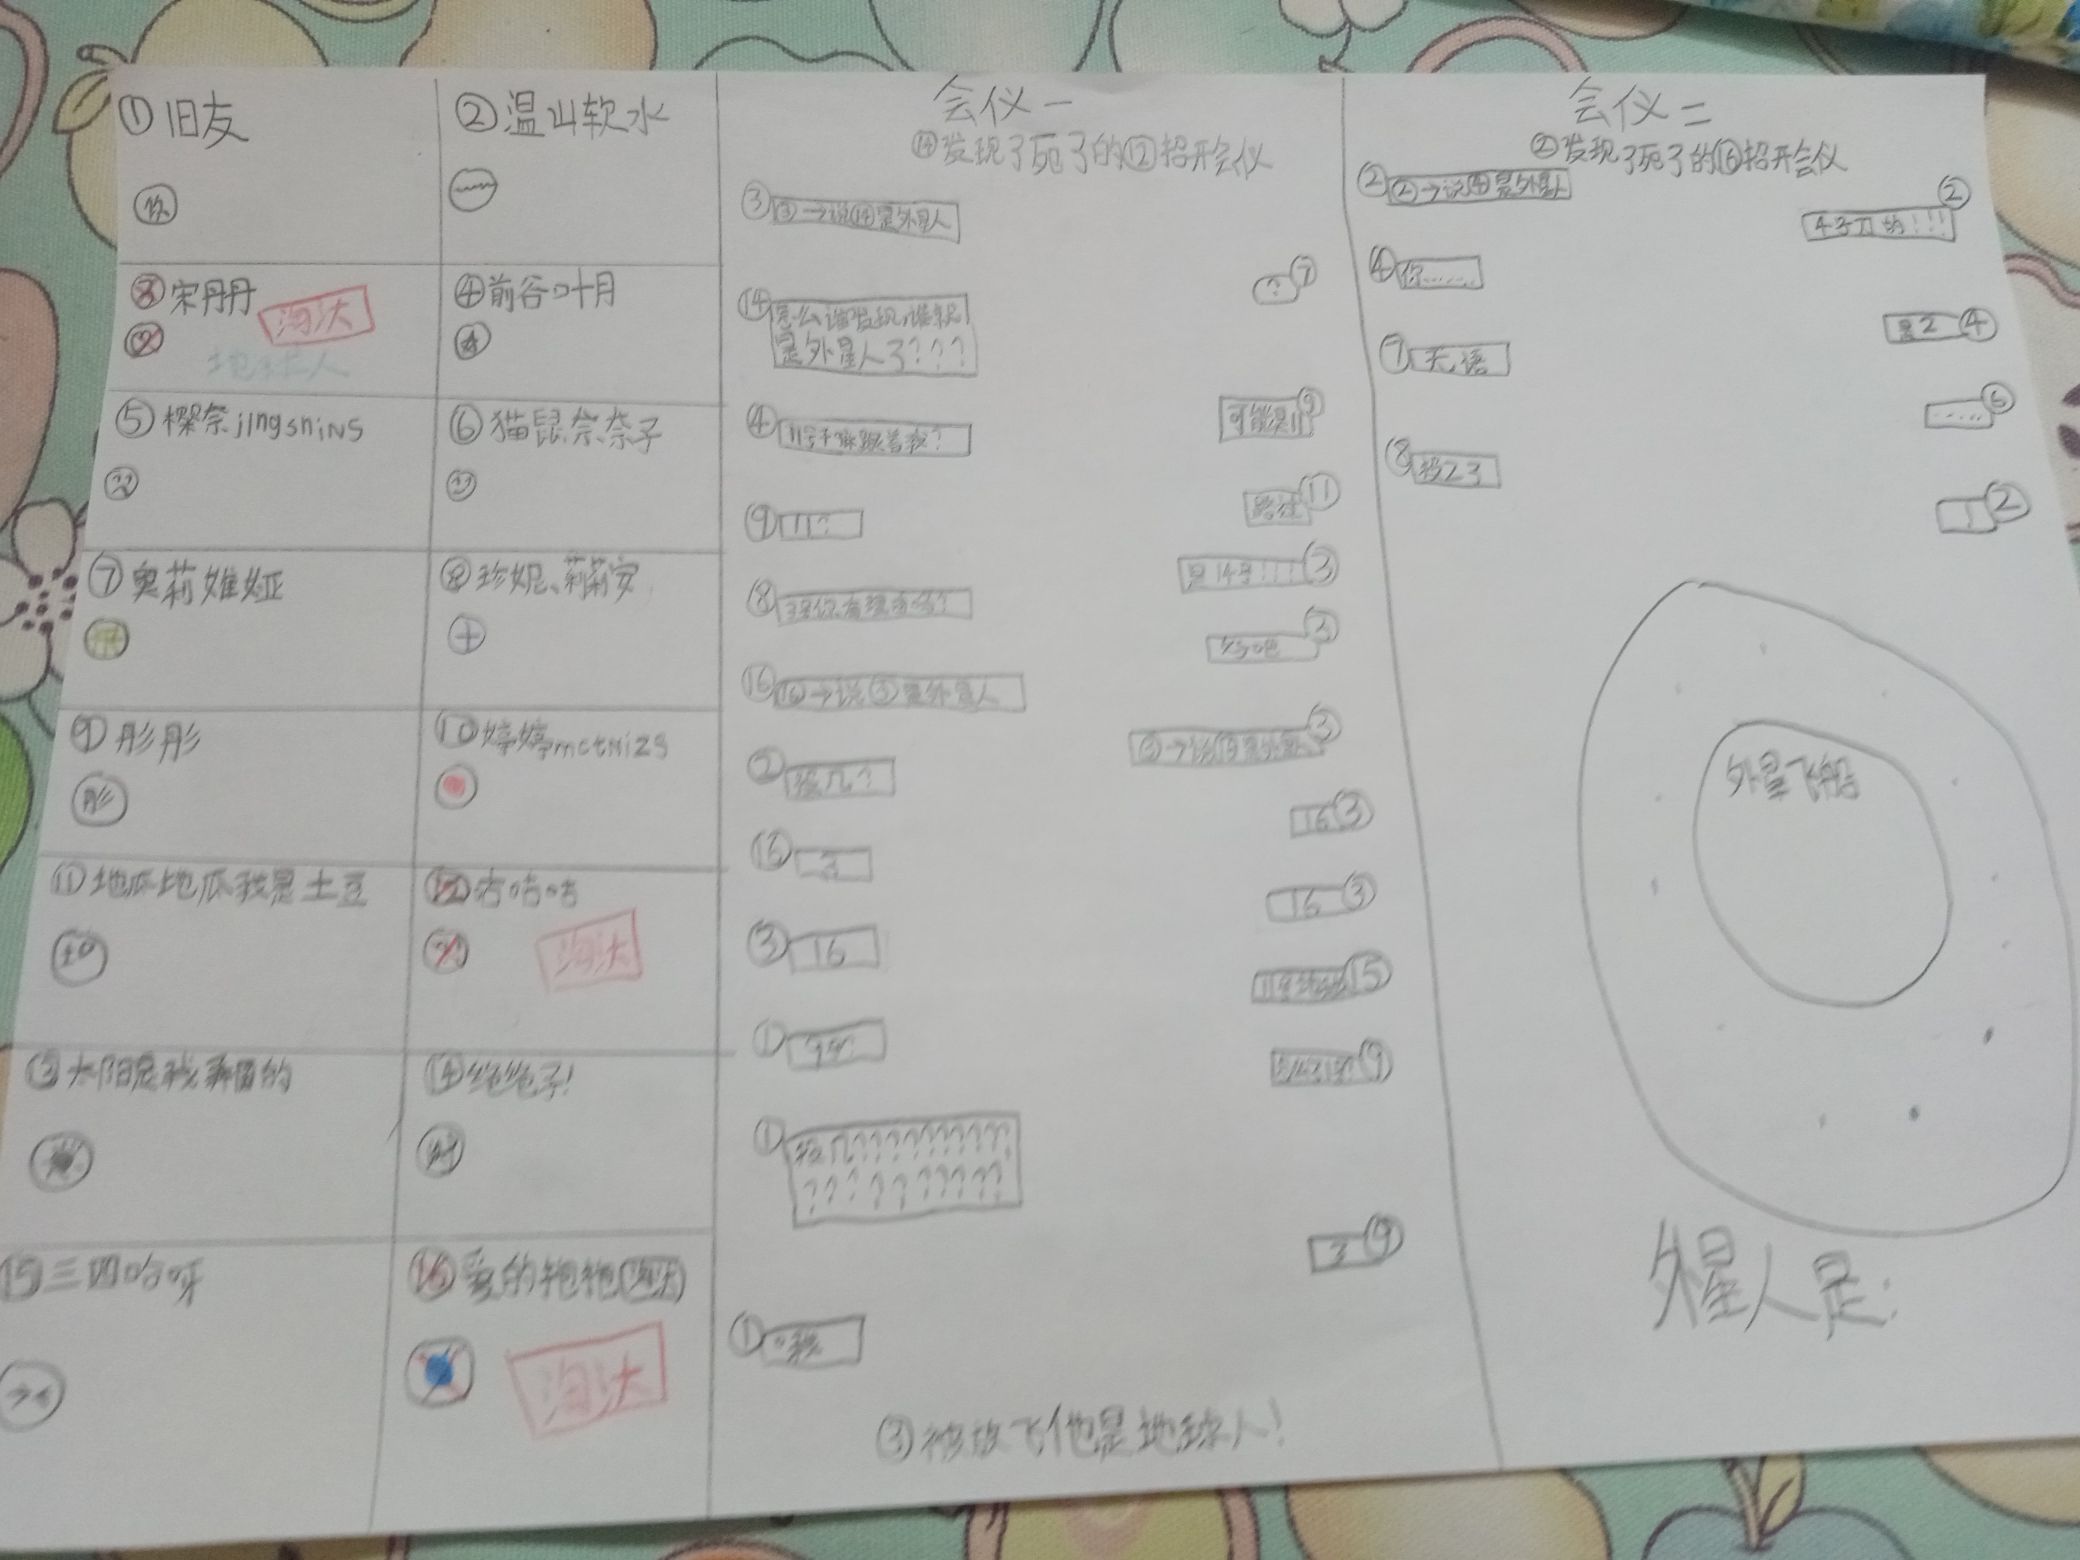 ①旧友
②温山软水
③宋丹丹
淘汰
地球人
④前谷叶月
⑤樑奈jingsnins
⑥猫鼠奈奈子
⑦奥莉雉娅
⑧珍妮、莉莉安
⑨彤彤
彤
⑩婷婷mctnizs
⑪地瓜地瓜我是土豆
土口
⑫咕咕咕
淘汰
⑬太阳是我画的
⑭绝绝子!
⑮三四哈呀
⑯爱的抱抱
淘汰
会仪一
⑭发现了死了的⑫招开会仪
③ ③→说⑭是外星人
? ⑦
⑭ 怎么谁发现谁就
是外星人了???
可能是11 ⑨
④ 11号干嘛跟着我?
路过 ⑪
⑨ 11?
是14号!!! ③
⑧ 3号你有证据吗?
好吧 ③
⑯ ⑯→说③是外星人
③→说⑯是外星人 ③
② 投几?
16 ③
⑯ 3
16 ③
③ 16
⑮
①
⑨
① 投几??????????
??????????
3 ⑨
①
③被放飞他是地球人!
会仪二
②发现了死了的⑯招开会仪
② ②→说④是外星人
4号刀的!!! ②
④ 你……
是2 ④
⑦ 无语
…… ⑥
⑧ 投2了
1 ②
外星飞船
外星人是: